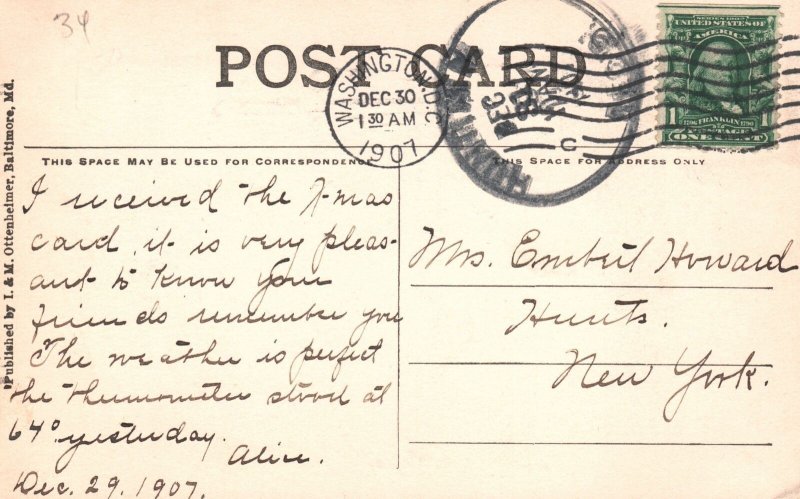 34
POST CARD
WASHINGTON, D.C.
DEC 30
1 30 AM
1907
C
SERIES 1902
UNITED STATES OF
AMERICA
FRANKLIN
1 1
POSTAGE
ONE CENT
Published by I. & M. Ottenheimer, Baltimore, Md.
THIS SPACE MAY BE USED FOR CORRESPONDENCE
THIS SPACE FOR ADDRESS ONLY
I received the X-mas
card, it is very pleas-
ant to know your
friends remember you
The weather is perfect
the thermometer stood at
64° yesterday.
Alice.
Dec. 29. 1907.
Mrs. Embert Howard
Hunts.
New York.